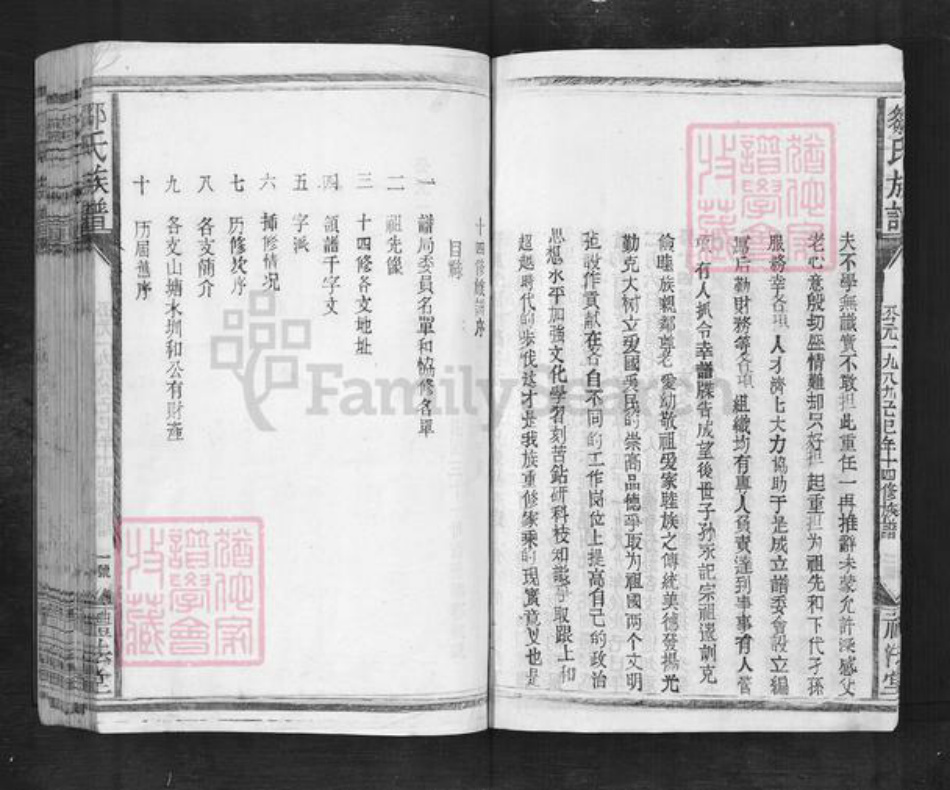 鄒氏族譜
公元一九八九己巳年十四修族譜
夫不學無識實不敢担此重任一再推辭未蒙允許深感父
老心意殷切盛情難却只好担起重担为祖先和下代子孫
服務幸各項人才濟上大力協助于是成立譜委會設立編
寫后勤財務等各項組織均有專人負責達到事事有人管
項項有人抓令幸譜牒告成望後世子孙永記宗祖遺訓克
倫睦族親鄰尊老愛幼敬祖愛家睦族之傳統美德發揚光
勤克大树立爱國爱民的崇高品德爭取为祖國两个文明
建設作貢献在各自不同的工作崗位上提高自己的政治
思想水平加強文化學習刻苦鉆研科技知識爭取跟上和
超越時代的步伐这才是我族重修家乘的現實意义也是
目錄
一 譜局委員名單和協修名單
二 祖先像
三 十四修各支地址
四 領譜千字文
五 字派
六 捕修情况
七 历修次序
八 各支簡介
九 各支山塘木圳和公有財產
十 历届舊序
鄒氏族譜
一號
FamilySearch
猶他家
譜學會
收藏
猶他家
譜學會
收藏